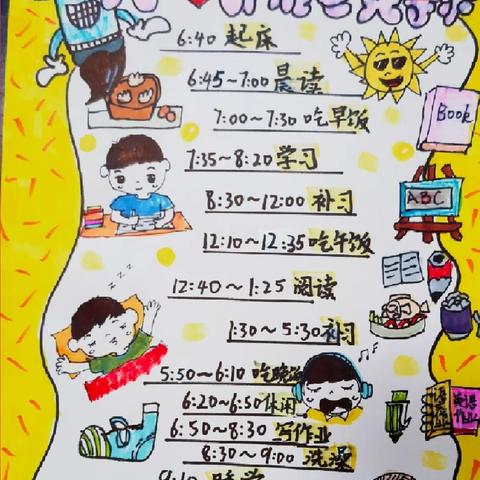 6:40 起床
6:45~7:00 晨读
7:00~7:30 吃早饭
Book
7:35~8:20 学习
8:30~12:00 补习
ABC
12:10~12:35 吃午饭
12:40~1:25 阅读
1:30~5:30 补习
5:50~6:10 吃晚
6:20~6:50 休闲
英语作业
6:50~8:30 写作业
8:30~9:00 洗澡
9:10